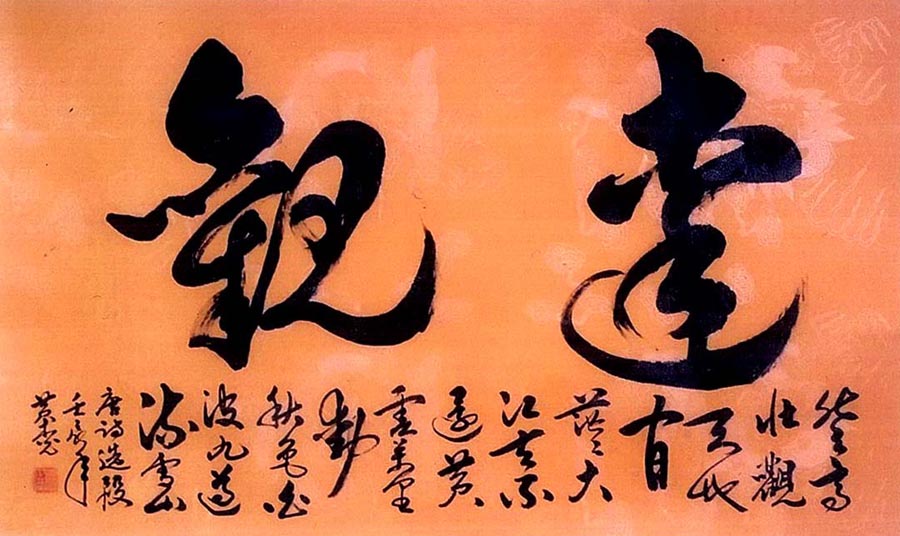 達觀
登高
壯觀
天地
間
茫茫大
江去不
還黃
雲萬里
動
秋色白
波九道
流雪山
唐詩選段
壬辰年